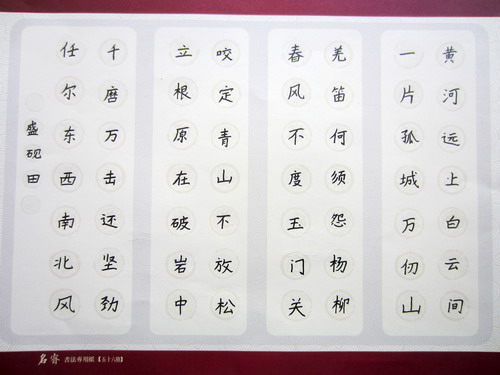 黄河远上白云间
一片孤城万仞山
羌笛何须怨杨柳
春风不度玉门关
咬定青山不放松
立根原在破岩中
千磨万击还坚劲
任尔东西南北风
盛砚田
名睿 書法專用紙【五十六格】